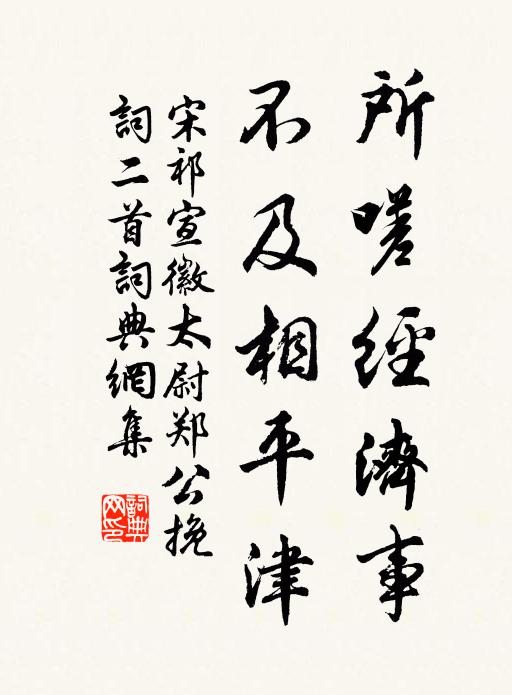 所嗟經濟事
不及相平津
宋祁宣徽太尉郑公挽
詞二首詞典網集
詞典網印